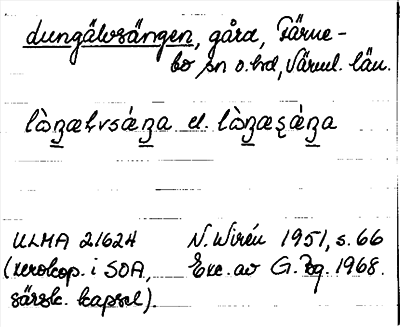 dungälvsängen, gård, Färne-
bo sn o. hd, Värml. län.
el.
ULMA 21624 N. Wirén 1951, s. 66
(xerokop. i SOA, Exc. av G. 1968.
särsk. kapsel).